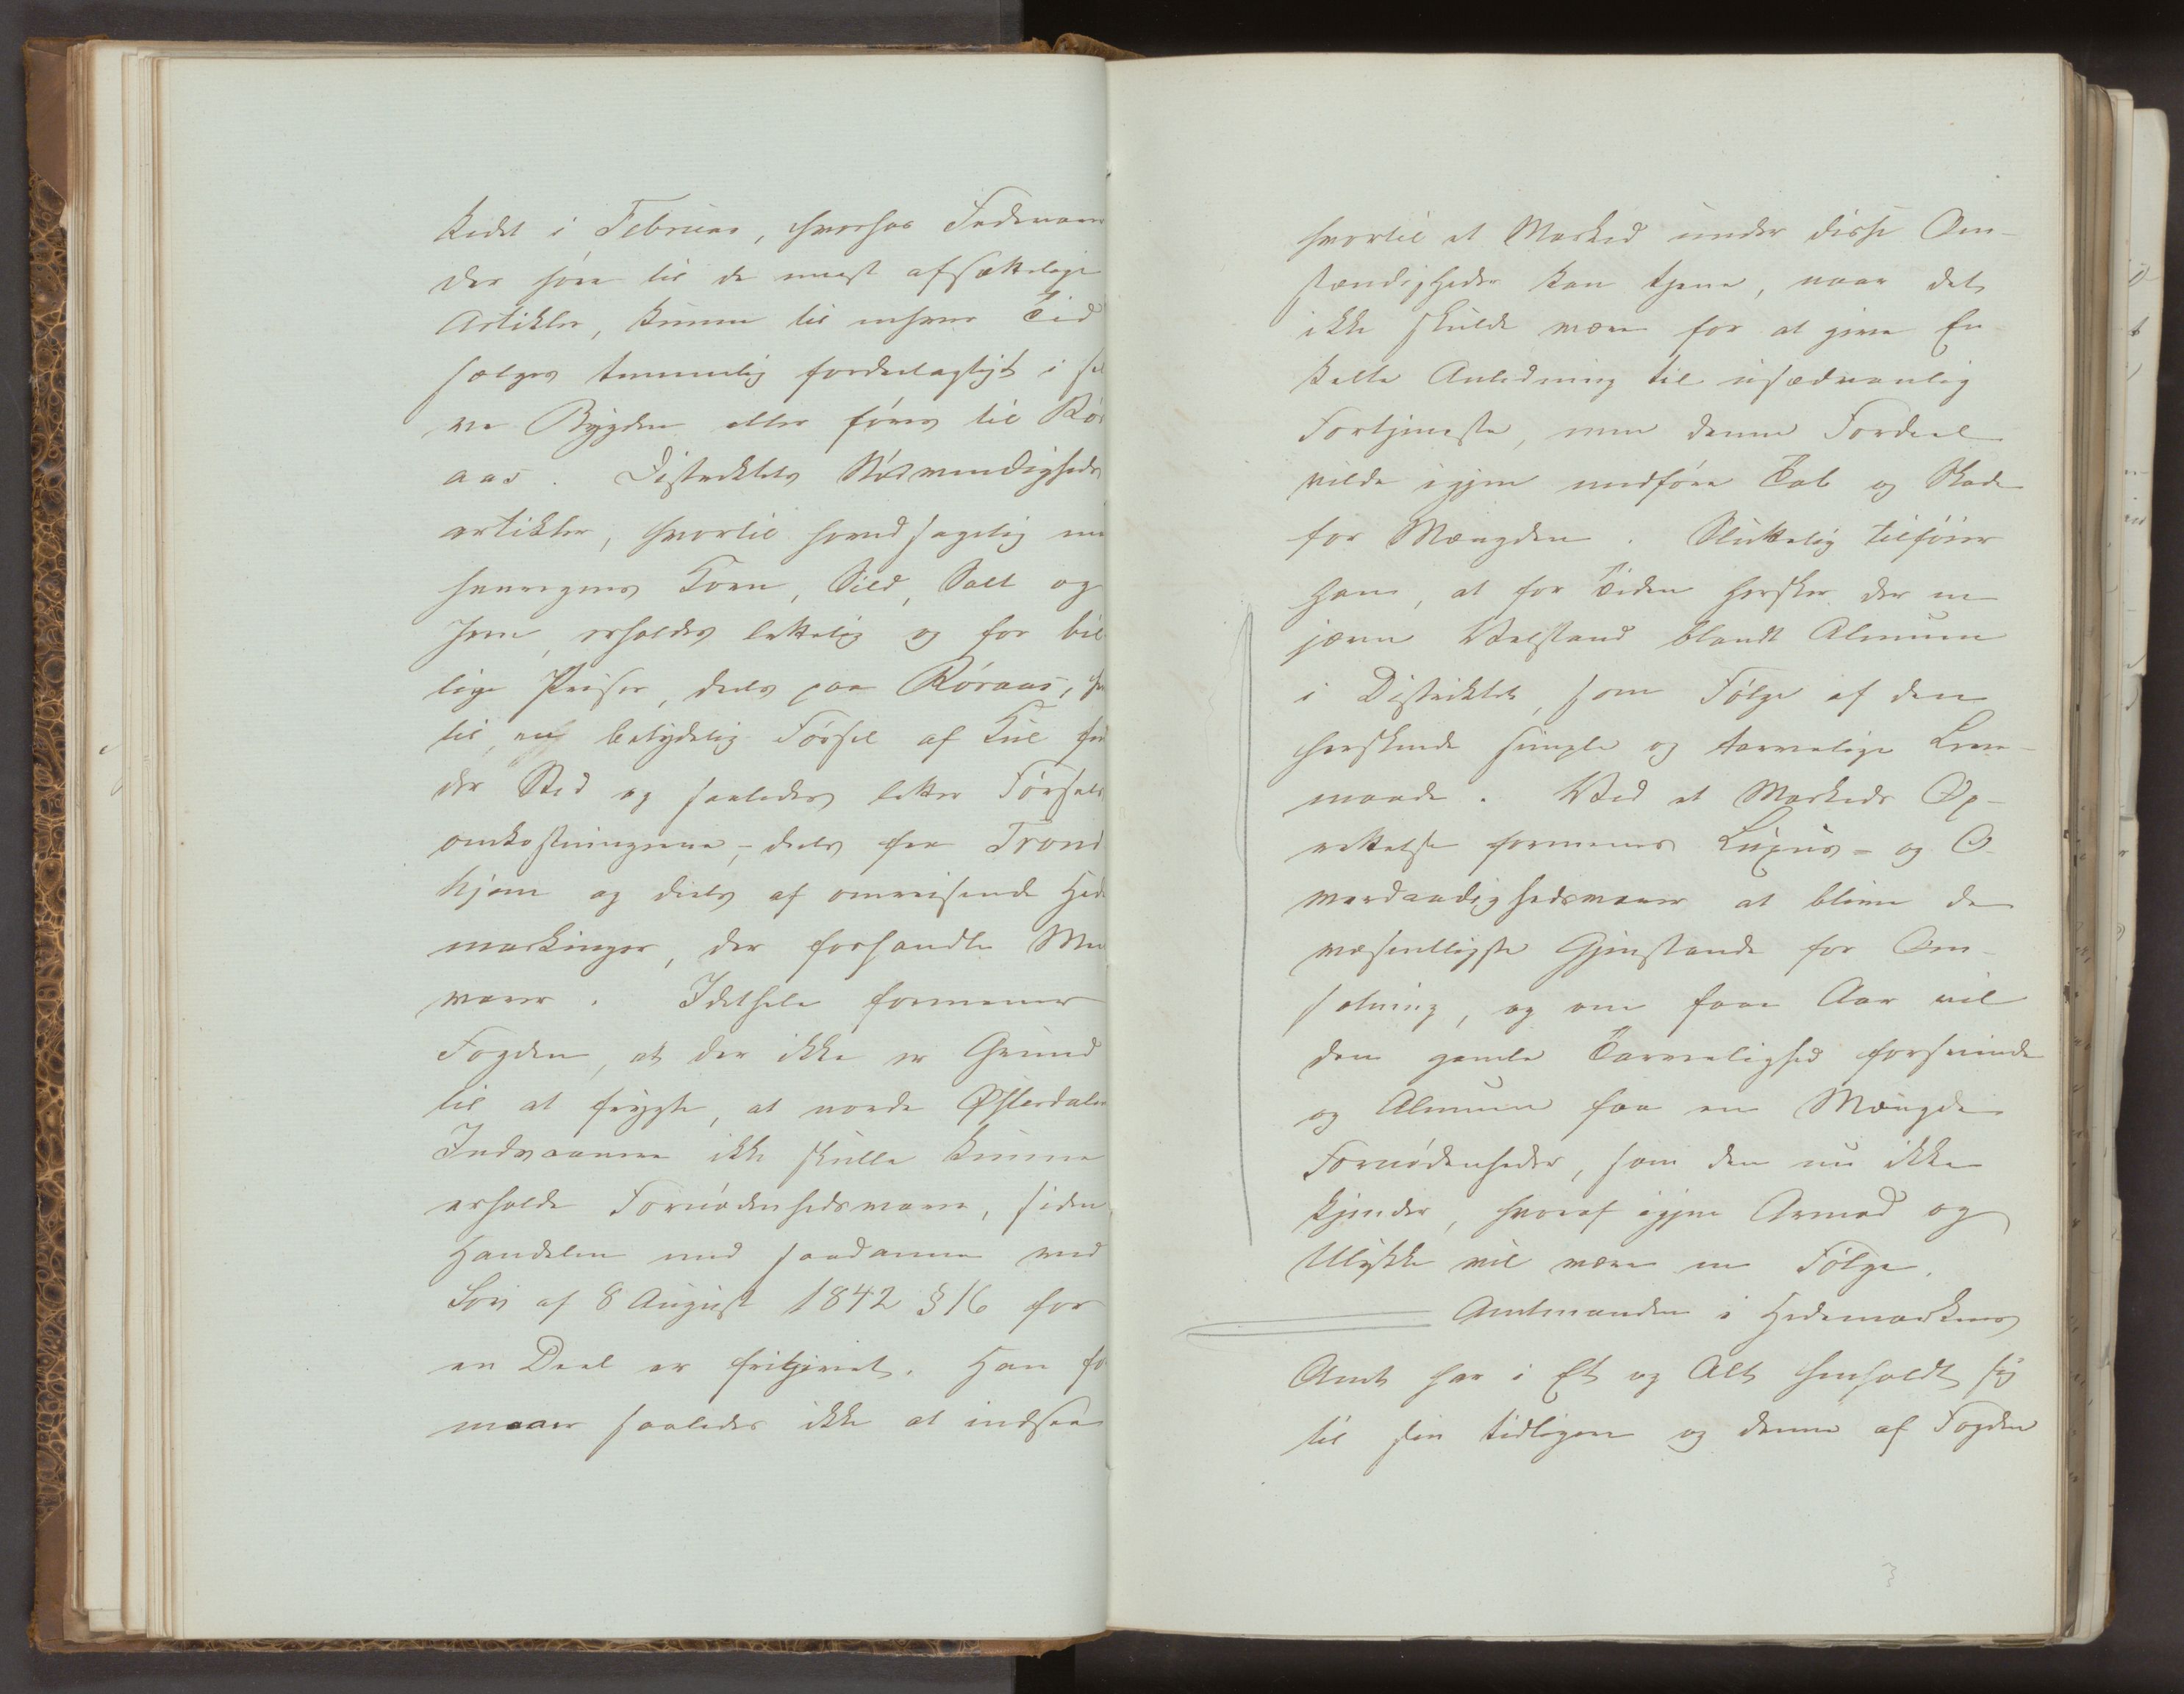 kedet i Februar, hvorhos Fedevarer
der høre til de meest afsættelige
Artikler, kunne til enhver Tid
sælges temmelig fordeelagtigt i sel
ve Bygden eller føres til Rör
aas. Distriktets Nødvendigheds
artikler, hvortil hovedsagelig
henregnes Korn, Sild, Salt og
Jern, erholdes lettelig og for bil
lige Priser, deels paa Röraas,
til en betydelig Førsel af Kul
der Sted og saaledes letter Førsels
omkostningerne, – deels fra Trond
hjem og deels af omreisende Hede
markinger, der forhandle
varer. Idethele formener
Fogden, at der ikke er Grund
til at frygte, at nordre Østerdalens
Indvaanere ikke skulle kunne
erholde Fornødenhedsvarer, siden
Handelen med saadanne ved
Lov af 8 August 1842 § 16 for
en Deel er frigivet. Han for
maaer saaledes ikke at indsee
hvortil et Marked under disse Om-
stændigheder kan tjene, naar det
ikke skulde være for at give En
kelte Anledning til usædvanlig
Fortjeneste, men denne Fordeel
vilde igjen medføre Tab og Skade
for Mængden. Sluttelig tilføier
Han, at for Tiden hersker der en
jævn Velstand blandt Almuen
i Distriktet, som Følge af den
herskende simple og tarvelige Leve-
maade. Ved et Markeds Op-
rettelse formenes Luxus- og U-
nødvendighedsvarer at blive de
væsentligste Gjenstande for Om-
sætning, og om faae Aar vil
den gamle Tarvelighed forsvinde
og Almuen faae en Mængde
Fornödenheder, som den nu ikke
kjender, hvoraf igjen Armod og
Ulykke vil være en Følge.
Amtmanden i Hedemarkens
Amt har i Et og Alt henholdt sig
til sin tidligere og denne af Fogden